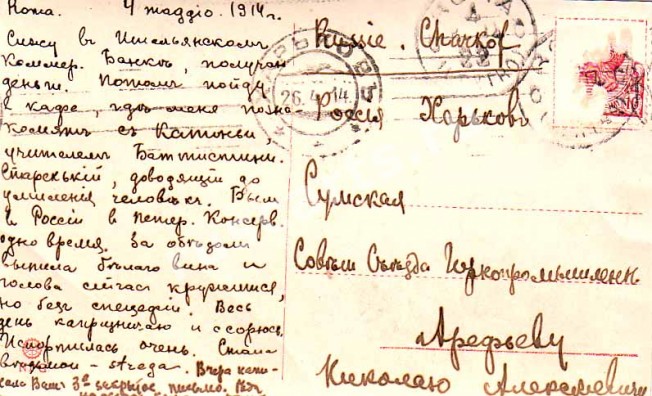 Roma. 4 maggio. 1914г.
Сижу въ Итальянскомъ
Коммер. Банкѣ, получаю
деньги. Потомъ пойду
в кафе, гдѣ меня позна-
комятъ съ
учителемъ Баттистини.
Старенькій, доводящій до
умиленія человѣкъ. Былъ
в Россіи в Петер. Консерв.
одно время. За обѣдомъ
выпила бѣлаго вина и
голова сейчас кружится,
но безъ Весь
день капризничаю и ссорюсь.
Испортилась очень. Стала
вѣдьмой - strega. Вчера напи-
сала Вамъ 3ье закрытое письмо.
Russie. Charkof
Россія Харьковъ
Сумская
Совѣтъ Съѣзда Горнопромышленн
Арефьеву
Николаю Алексѣевичу
ХАРЬКОВЪ
26.4.14